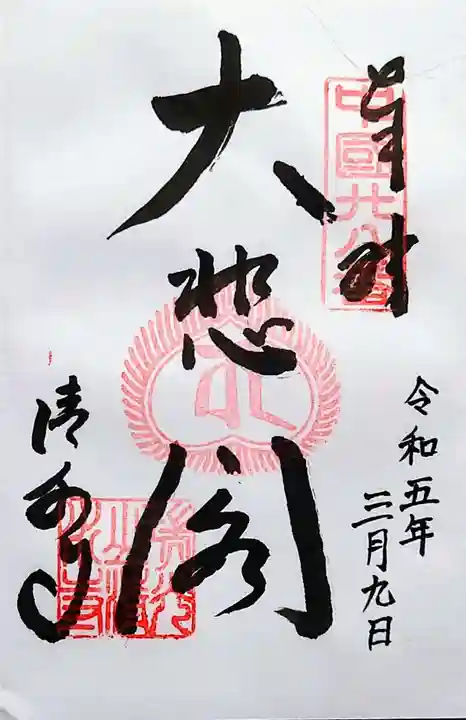 奉拝
中國廿八番
大悲閣
清水寺
令和五年
三月九日